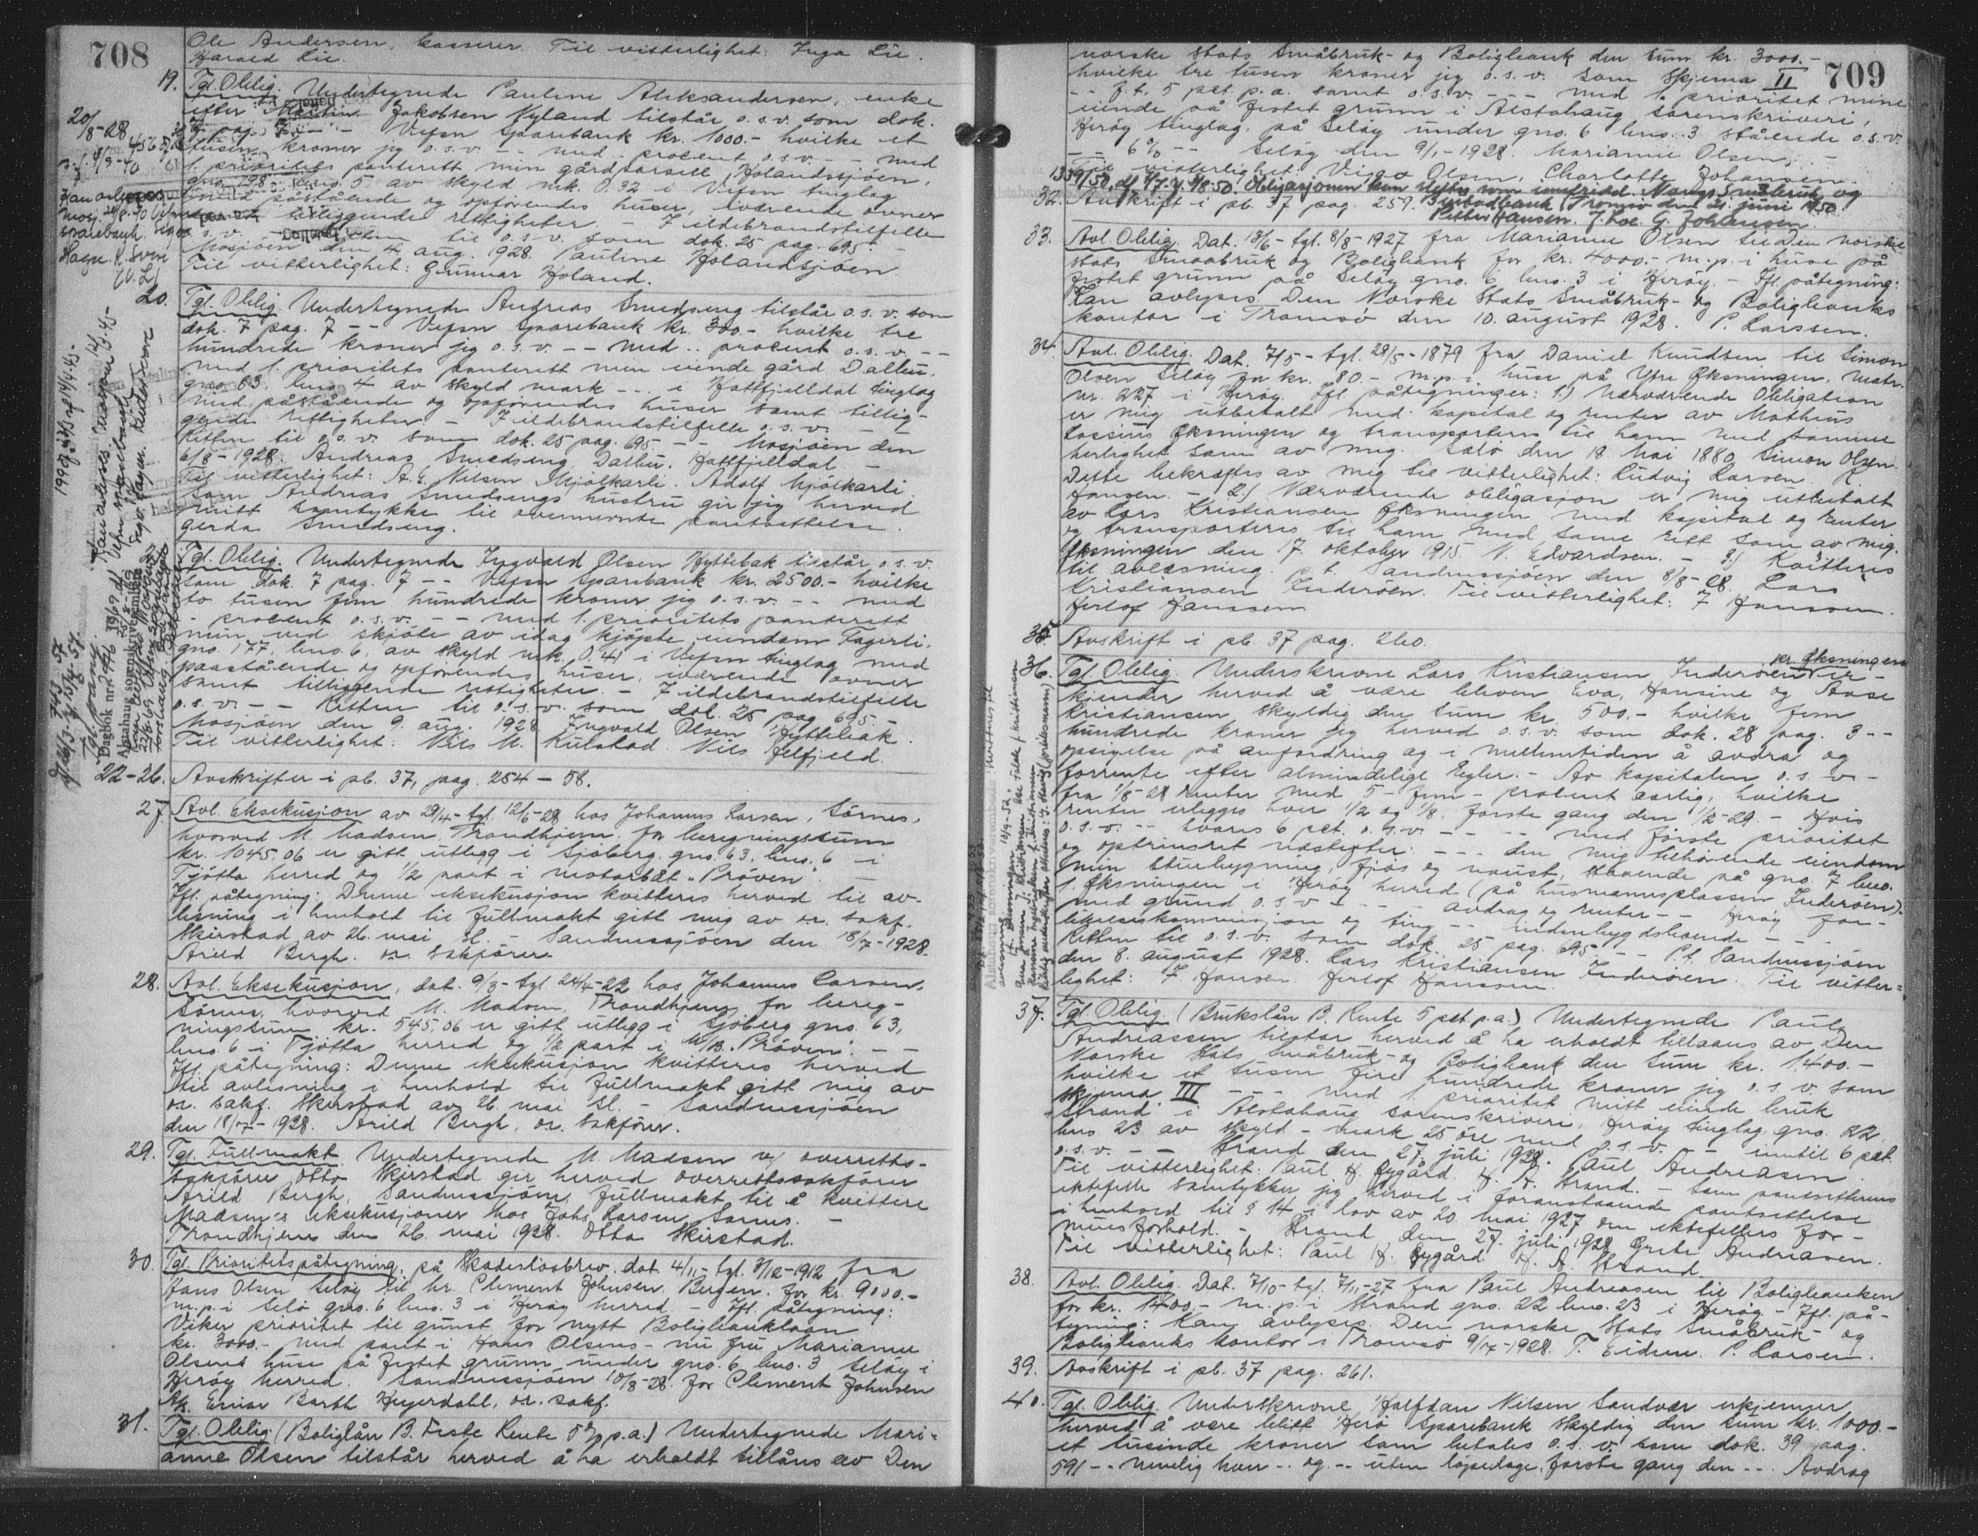 708
Ole Andersen, kasserer. Til vitterlighet: Inga Lie.
Harald Lie.
19. Tgl. Oblig. Undertegnede Pauline Aleksandersen, enke
efter Martin Jakobsen Hyland tilstår o.s.v. som dok.
7 pag. 7 - - Vefsn Sparebank kr. 1000.- hvilke et
tusen kroner jeg o.s.v. - - med - procent o.s.v. - - med
1. prioritets panterett min gårdparsell Holandsjøen,
gno. 198 bno. 5 av skyld mrk. 0.32 i Vefsn tinglag
med påstående og opførendes huser, iværende ovner
samt tilliggende rettigheter. I ildebrandstilfelle
o.s.v. - Retten til o.s.v. som dok. 25 pag. 695 - -
Mosjøen den 4. aug. 1928. Pauline Holandsjøen
Til vitterlighet: Gunnar Holand.
20. Tgl. Oblig. Undertegnede Andreas Smedseng tilstår o.s.v. som
dok. 7 pag. 7 - - Vefsn Sparebank kr. 300.- hvilke tre
hundrede kroner jeg o.s.v. - - med .. procent o.s.v. - -
med 1. prioritets panterett min eiende gård Dalbu,
gno. 63, bno. 4 av skyld mark - - i Hattfjelldal tinglag
med påstående og opførendes huser samt tillig-
gende rettigheter. - I ildebrandstilfelle o.s.v. - -
Retten til o.s.v. som dok. 25 pag. 695 - - Mosjøen den
6/8 - 1928. Andreas Smedseng Dalbu, Hattfjelldal -
Til vitterlighet: A. E. Nilsen Mjølkarli. Adolf Mjølkarli.
Som Andreas Smedsengs hustru gir jeg herved
mitt samtykke til ovennevnte pantsettelse.
Gerda Smedseng.
Tgl. Oblig. Undertegnede Ingvald Olsen Hyttebak tilstår o.s.v.
som dok 7 pag. 7 - - Vefsn Sparebank kr. 2500.- hvilke
to tusen fem hundrede kroner jeg o.s.v. - - med
- procent o.s.v. - - med 1. prioritets panterett
min ved skjøte av idag kjøpte eiendom Fagerli,
gno. 177, bno. 6, av skyld mrk. 0.41 i Vefsn tinglag med
paastående og opførendes huser, iværende ovner
samt tilliggende rettigheter. - I ildebrandstilfelle
o.s.v. - - Retten til o.s.v. som dok. 25 pag. 695. -
Mosjøen den 9. aug. 1928. Ingvald Olsen Hyttebak.
Til vitterlighet: Nils M. Kulstad. Nils Jelfjeld.
22-26. Avskrifter i pb. 37, pag. 254 - 58.
27. Avl. Eksekusjon av 21/4 - tgl. 12/5-28 hos Johannes Larsen, Sørnes,
hvorved M. Madsen Trondhjem for beregningssum
kr. 1045.06 er gitt utlegg i Sjøberg gno. 63, bno. 6 - i
Tjøtta herred og 1/2 part i motorbåt "Prøven". -
Ifl. påtegning: Denne eksekusjon kvitteres herved til av-
lesning i henhold til fullmakt gitt mig av or. sakf.
Skirstad av 26. mai sl. - Sandnessjøen den 18/7-1928.
Arild Bergh. or. sakfører.
28. Avl. Eksekusjon, dat. 9/3 - tgl. 24/4-22 hos Johannes Larsen,
Sørnes, hvorved M. Madsen, Trondhjem, for bereg-
ningssum kr. 545.06 er gitt utlegg i Sjøberg gno. 63,
bno. 6 i Tjøtta herred og 1/2 part i M/B. "Prøven". - -
Ifl. påtegning: Denne eksekusjon kvitteres herved
til avlesning i henhold til fullmakt gitt mig av
or. sakf. Skirstad av 26. mai sl. - Sandnessjøen
den 18/7 - 1928. Arild Bergh, or. sakfører.
29. Tgl. Fullmakt. Undertegnede M. Madsen v/ overretts-
sakfører Otto Skirstad gir herved overrettssakfører
Arild Bergh, Sandnessjøen, fullmakt til å kvittere
Madsen's eksekusjoner hos Johs Larsen Sørnes. -
Trondhjem den 26. mai 1928. Otto Skirstad.
30. Tgl. Prioritetspåtegning, på Skadesløsbrev, dat. 4/11 - tgl. 3/12-1912 fra
Hans Olsen Seløy til hr. Clement Johnsen, Bergen, for kr. 9000.-
m.p. i Selø gno. 6 bno. 3 i Herøy herred. - Ifl. påtegning:
Viker prioritet til gunst for nytt Boligbanklaan
kr. 3000.- med pant i Hans Olsens - nu fru Marianne
Olsens huse på festet grunn under gno. 6 bno. 3 Seløy i
Herøy herred. Sandnessjøen 10/8-28. for Clement Johnsen
Ak. Einar Barth Heyerdahl, or. sakf.
31. Tgl. Oblig. (Boliglån B. Feste Rente 5% p.a.) Undertegnede Mari-
anne Olsen tilstår herved å ha erholdt tillåns av Den
709
norske Stats Småbruk- og Boligbank den sum kr. 3000.-
hvilke tre tusen kroner jeg o.s.v. som Skjema II
- - f.t. 5 pct. p.a. samt o.s.v. - - - med 1. prioritet mine
eiende på festet grunn i Alstahaug sorenskriveri,
Herøy tinglag, på Seløy under gno. 6 bno. 3 stående o.s.v.
- - 6% - - Seløy den 9/1 - 1928. Marianne Olsen, -
Til vitterlighet: Viggo Olsen, Charlotte Johansen.
32. Avskrift i pb. 37 pag. 259.
33. Avl. Oblig. Dat. 13/6 - tgl. 8/8 - 1927 fra Marianne Olsen til Den norske
Stats Smaabruk og Boligbank for kr. 4000.- m.p. i huse på
festet grunn på Seløy gno. 6 bno. 3 i Herøy. - Ifl. påtegning:
Kan avlyses Den Norske Stats Småbruk- og Boligbanks
kontor i Tromsø den 10. august 1928. P. Larssen.
34. Avl. Oblig. Dat. 7/5 - tgl. 29/5 - 1879 fra Daniel Knudsen til Simon
Olsen Seløy for kr. 80.- m.p. i huse på Ytre Øksningen, matr.
nr. 227 i Herøy. Ifl. påtegninger: 1.) Nærværende Obligation
er mig utbetalt med kapital og renter av Mathias
Øksningen og transporteres til ham med samme
herlighet som av mig. Selø den 18 Mai 1880 Simon Olsen.
Dette bekræftes av mig til vitterlighet: Ludvig Larsen.
Hansen. - 2.) Nærværende obligasjon er mig utbetalt
av Lars Kristiansen Øksningen med kapital og renter
og transporteres til ham med same rett som av mig.
Øksningen den 17. oktober 1915. N. Edvardsen. - 3.) Kvitteres
til avlesning. p.t. Sandnessjøen den 8/8-28. Lars
Kristiansen Inderøen. Til vitterlighet: F Hanssen.
Herlof Hanssen
35 Avskrift i pb. 37 pag. 260.
36. Tgl. Oblig. Underskrevne Lars Kristiansen, Inderøen pr. Øksningen er-
kjender herved å være bleven Eva, Hansine og Aase
Kristiansen skyldig den sum kr. 500.- hvilke fem
hundrede kroner jeg herved o.s.v. som dok. 28 pag. 3 - -
opsigelse på anfordring og i mellemtiden å avdra og
forrente efter almindelige regler. - Av kapitalen o.s.v. -
fra 1/8-28 renter med 5 - fem - procent aarlig, hvilke
renter erlegges hver 1/2 og 1/8, første gang den 1/2-29. - Hvis
o.s.v. - - svares 6 pct. o.s.v. - - - - med første prioritet
og optrinsret udstefter. - - - den mig tilhørende eiendom
(min stuebygning, fjøs og naust, staaende på gno. 7 bno.
1, Øksningen i Herøy herred (på husmannsplassen Inderøen).
med grund o.s.v. - - - - avdrag og renter - - Herøy for-
likelseskommisjon og ting - - - -
Retten til o.s.v. som dok. 25 pag. 695 - - P.t. Sandnessjøen
den 8. august 1928. Lars Kristiansen Inderøen. Til vitter-
lighet: F Hansen. Herlof Hanssen.
37. Tgl. Oblig. (Brukslån B. Rente 5 pct p.a.) Undertegnede Paul
Andreassen tilstår herved å ha erholdt tillaans av Den
Norske Stats Småbruk- og Boligbank den sum kr. 1400.-
hvilke et tusen fire hundrede kroner jeg o.s.v. som
skjema III - - - med 1. prioritet mitt eiende bruk
Strand i Alstahaug sorenskriveri, Herøy tinglag, gno. 22,
bno 23 av skyld - mark 25 øre med o.s.v. - - inntil 6 pct.
o.s.v. - - Strand den 27. juli 1928. Paul Andreasen.
Til vitterlighet: Paul H. Nygård. H. A. Strand. - Som pantsetterens
ektefelle samtykker jeg herved i foranstaaende pantsettelse
i henhold til § 14 i lov av 20. mai 1927 om ektefellers for-
mues forhold. - Strand, den 27. juli 1928 Grete Andreasen.
Til vitterlighet: Paul H. Nygård H. A. Strand.
38. Avl. Oblig. Dat. 7/10 - tgl. 7/11-27 fra Paul Andreasen til Boligbanken
for kr. 1400.- m.p. i Strand gno. 22 bno. 23 i Herøy - Ifl. på-
tegning: Kan avlyses. Den norske Stats Småbruk- og
Boligbanks kontor i Tromsø 9/7 - 1928. T. Eidem. P. Larsen.
39. Avskrift i pb. 37 pag. 261.
40. Tgl. Oblig. Underskrevne Halfdan Nilsen Sandvær erkjenner
herved å være blitt Herø Sparebank skyldig den sum kr. 1000.-
et tusinde kroner som betales o.s.v. som dok. 39 pag.
591 - - nemlig hver - . og - - uten løpedage, første gang den - - . Avdrag